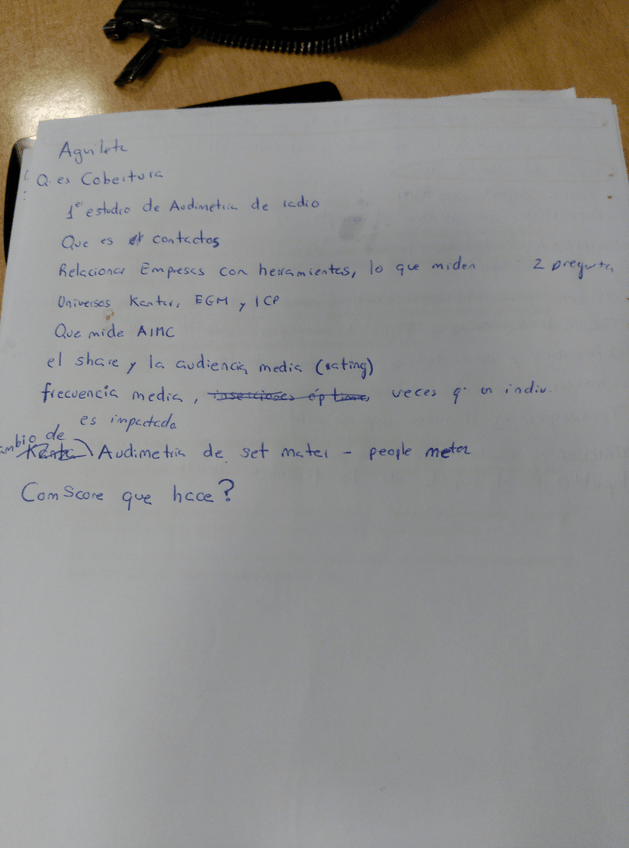 Aguilete
Q. es Cobertura
1er estudio de Audimetria de radio
Que es contactos
Relacionar Empresas con herramientas, lo que miden 2 pregunta
Universos Kantar, EGM y ICP
Que mide AIMC
el share y la audiencia media (rating)
frecuencia media, inserciones óptimas veces q un indiv.
es impactado
ambio de
Kantar Audimetria de set mater - people meter
ComScore que hace?